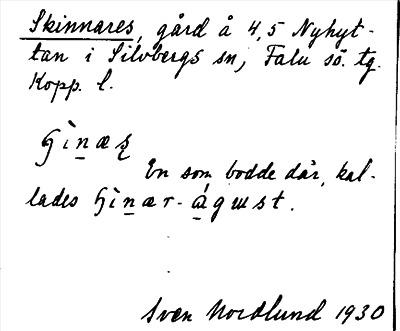 Skinnares, gård å 4,5 Nyhyt-
tan i Silvbergs sn, Falu sö. tg.
Kopp. l.
ɧìṉæȿ
En som bodde där, kal-
lades ɧìṉær-ág​ɯst.
Sven Nordlund 1930